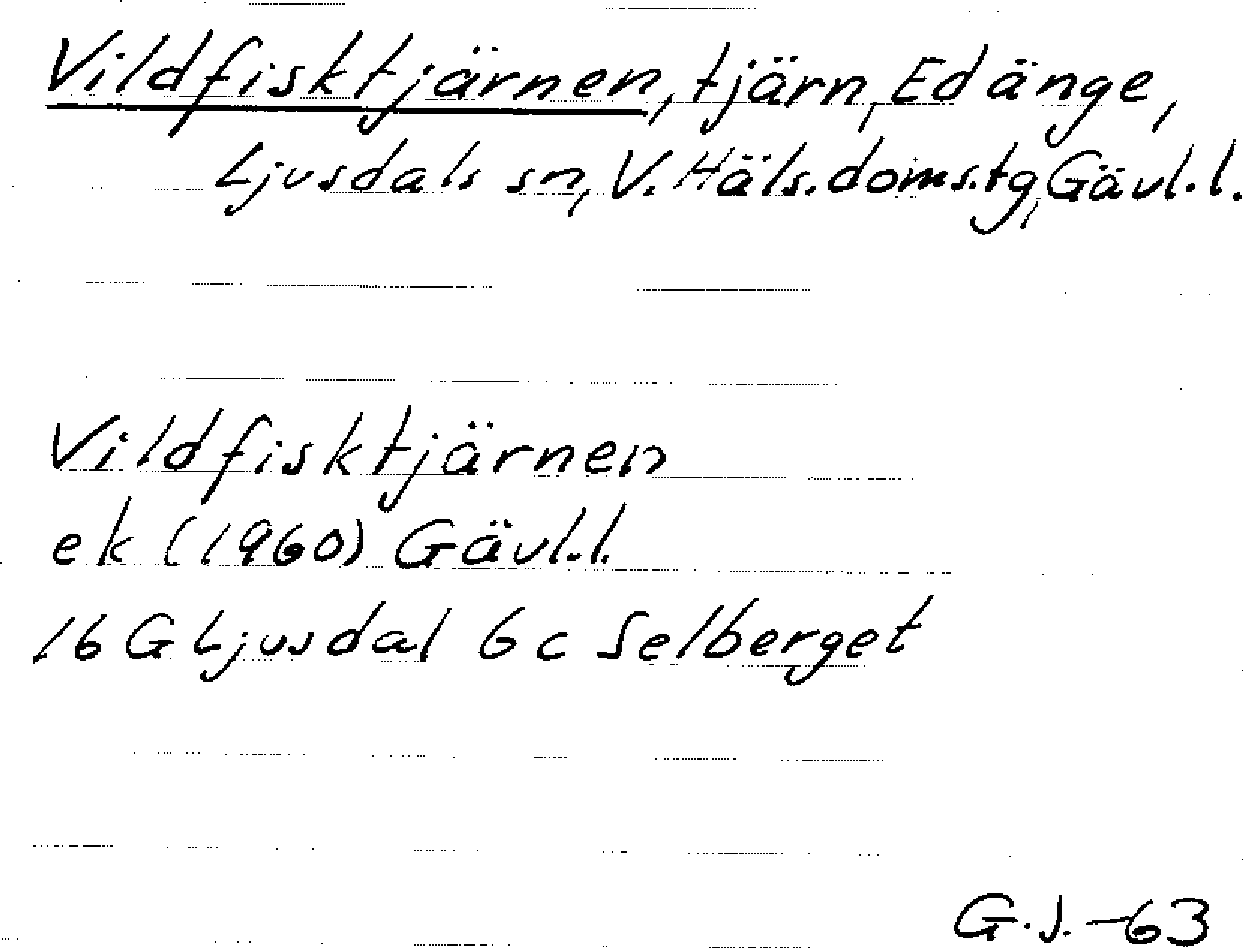 Vildfisktjärnen, tjärn, Edänge,
Ljusdals sn, V. Häls. doms.tg, Gävl.l.
Vildfisktjärnen
ek (1960) Gävl.l.
16 G Ljusdal 6 c Selberget
G.J. -63